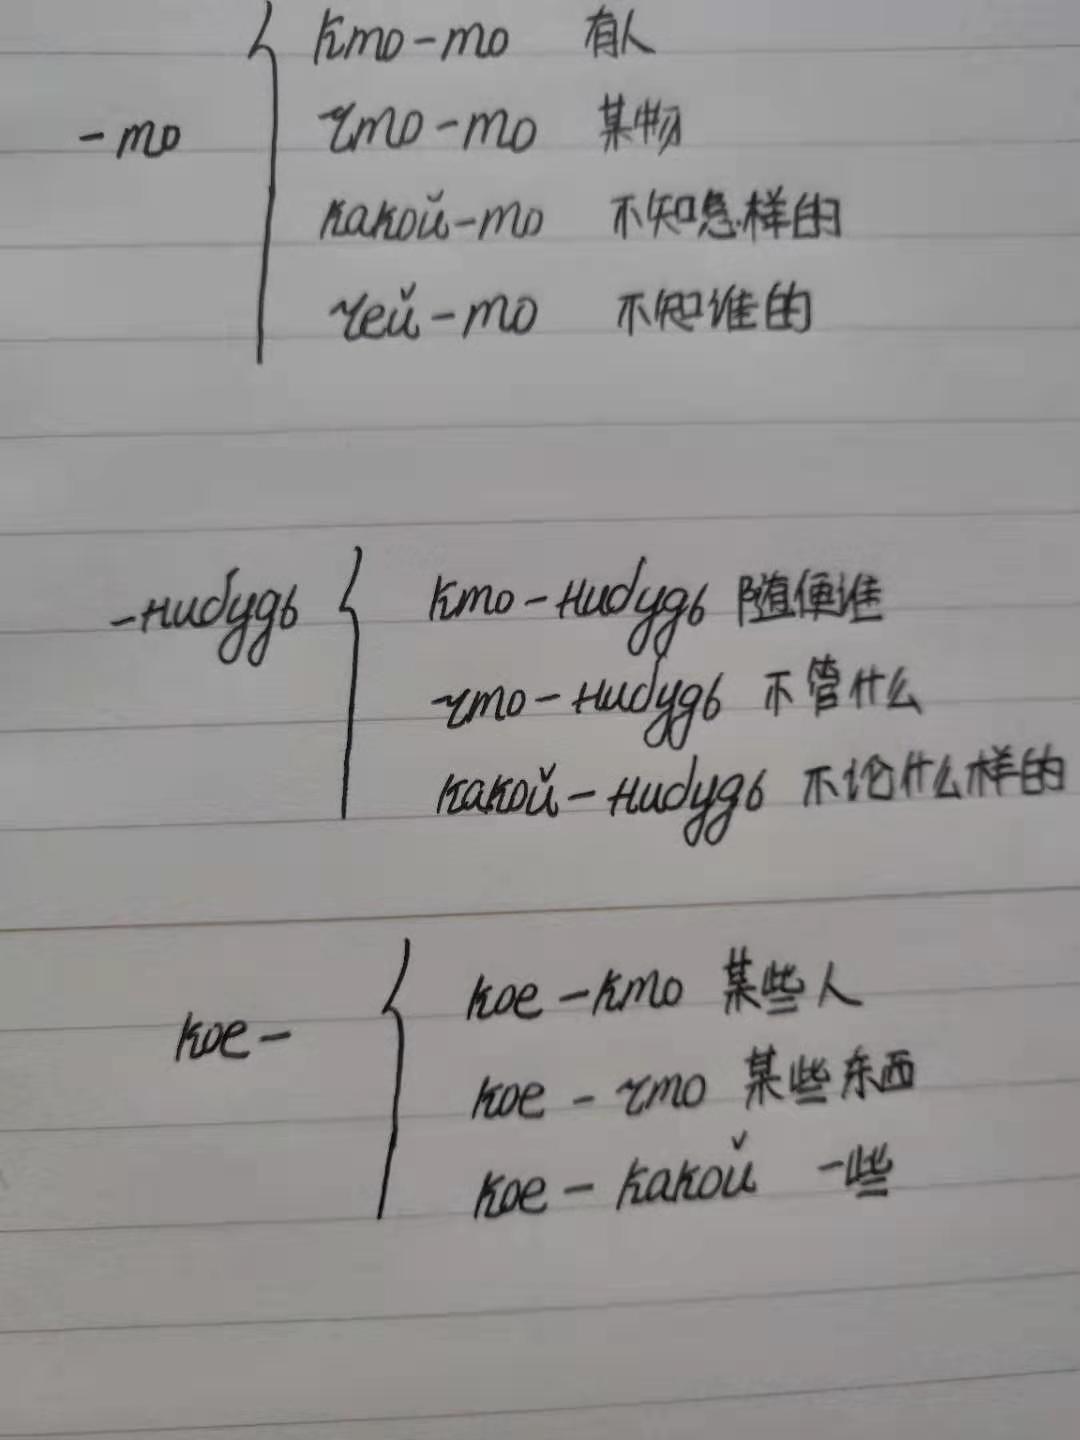 кто-то 有人
-то
что-то 某物
какой-то 不知怎样的
чей-то 不知谁的
-нибудь
кто-нибудь 随便谁
что-нибудь 不管什么
какой-нибудь 不论什么样的
кое-кто 某些人
кое-
кое-что 某些东西
кое-какой 一些